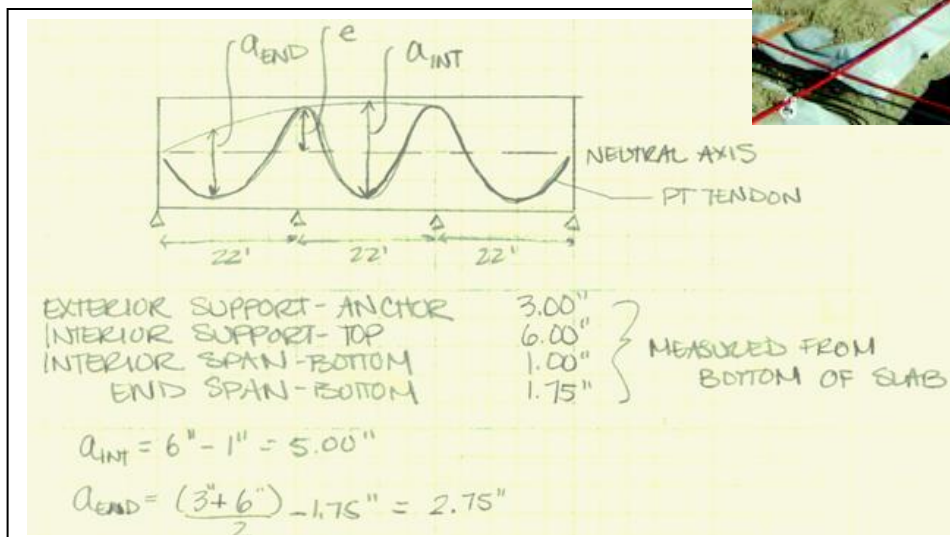 a_END e a_INT
NEUTRAL AXIS
PT TENDON
22' 22' 22'
EXTERIOR SUPPORT - ANCHOR 3.00"
INTERIOR SUPPORT - TOP 6.00"
INTERIOR SPAN - BOTTOM 1.00"
END SPAN - BOTTOM 1.75"
MEASURED FROM
BOTTOM OF SLAB
a_INT = 6" - 1" = 5.00"
a_END = (3"+6")/2 - 1.75" = 2.75"